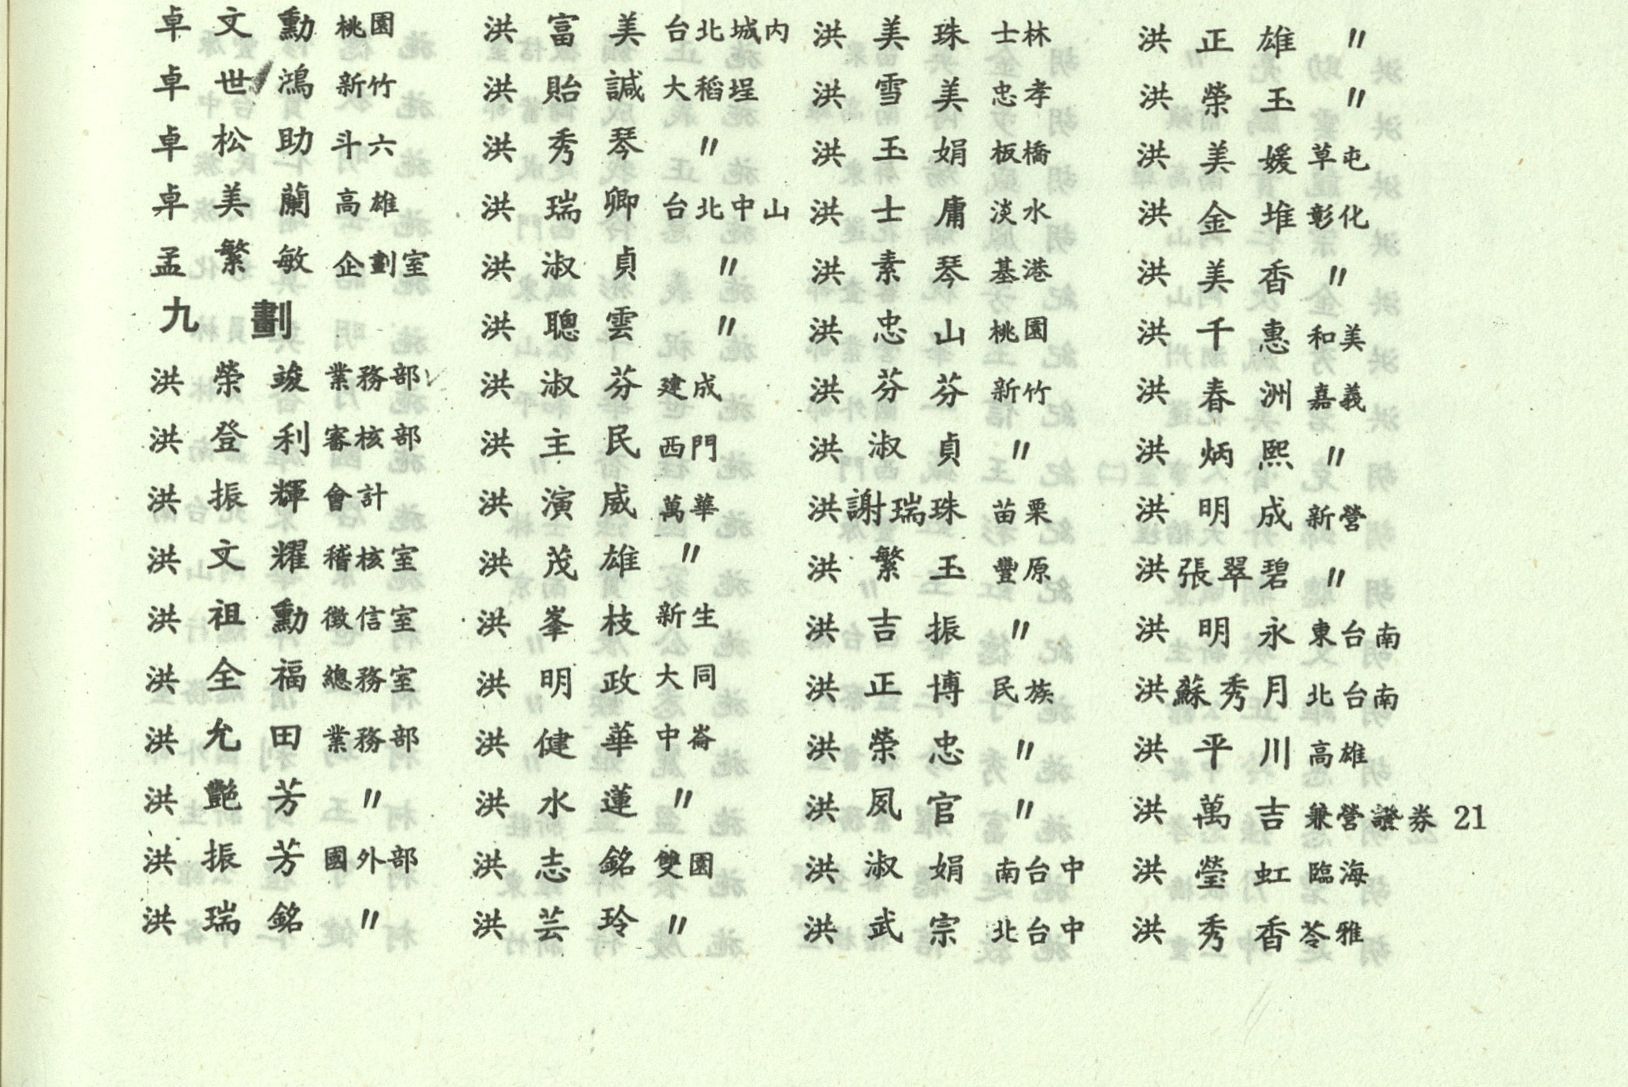 卓文勳 桃園
卓世鴻 新竹
卓松助 斗六
卓美蘭 高雄
孟繁敏 企劃室
九劃
洪榮竣 業務部
洪登利 審核部
洪振輝 會計
洪文耀 稽核室
洪祖勳 徵信室
洪全福 總務室
洪允田 業務部
洪艷芳 〃
洪振芳 國外部
洪瑞銘 〃
洪富美 台北城內
洪貽諴 大稻埕
洪秀琴 〃
洪瑞卿 台北中山
洪淑貞 〃
洪聰雲 〃
洪淑芬 建成
洪主民 西門
洪演威 萬華
洪茂雄 〃
洪峯枝 新生
洪明政 大同
洪健華 中崙
洪水蓮 〃
洪志銘 雙園
洪芸玲 〃
洪美珠 士林
洪雪美 忠孝
洪玉娟 板橋
洪士庸 淡水
洪素琴 基港
洪忠山 桃園
洪芬芬 新竹
洪淑貞 〃
洪謝瑞珠 苗栗
洪繁玉 豐原
洪吉振 〃
洪正博 民族
洪榮忠 〃
洪鳳官 〃
洪淑娟 南台中
洪武宗 北台中
洪正雄 〃
洪榮玉 〃
洪美媛 草屯
洪金堆 彰化
洪美香 〃
洪千惠 和美
洪春洲 嘉義
洪炳熙 〃
洪明成 新營
洪張翠碧 〃
洪明永 東台南
洪蘇秀月 北台南
洪平川 高雄
洪萬吉 兼營證券 21
洪瑩虹 臨海
洪秀香 苓雅